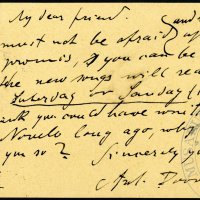 My dear friend,
must not be afraid of
promis, you can be
the new songs will rea
Saturday or Sunday (
ank you could have writ
Novello long ago, why
you so?
Sincerely y
Ant. Dvor